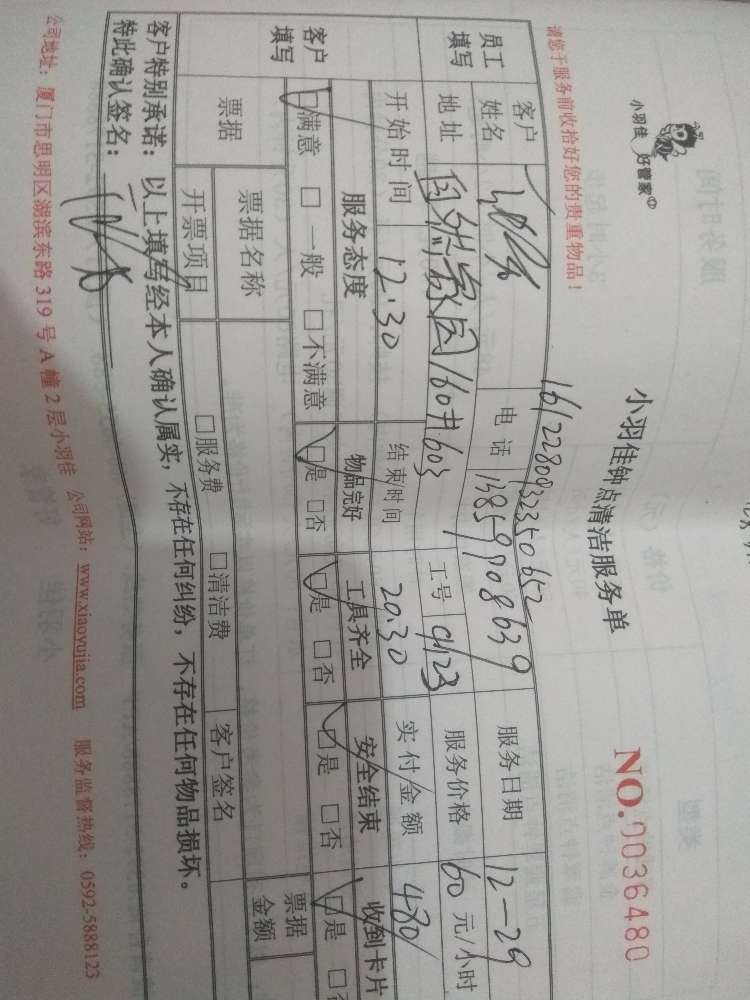 小羽佳 好管家
请您于服务前收拾好您的贵重物品！
小羽佳钟点清洁服务单
NO.0036480
1612280932350652
员工填写
客户姓名
电话 13859908639
服务日期 12-29
地址 自然家园160#603
工号 9123
服务价格 60 元/小时
开始时间 12.30
结束/时间 20.30
实付/金额 480/
客户填写
服务态度 物品完好 工具齐全 安全结束 收到卡片
□满意 □一般 □不满意 □是 □否 □是 □否 □是 □否 □是
票据 票据名称 □服务费 □清洁费 票据金额
开票项目 客户签名
客户特别承诺：以上填写经本人确认属实，不存在任何纠纷，不存在任何物品损坏。
特此确认签名：
公司地址：厦门市思明区湖滨东路 319 号 A 幢 2 层小羽佳 公司网站：www.xiaoyujia.com 服务监督热线：0592-5888123